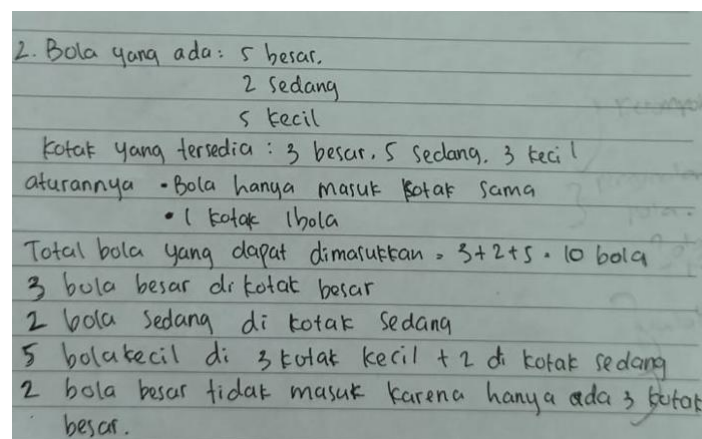 2. Bola yang ada : 5 besar.
2 Sedang
5 kecil
kotak yang tersedia : 3 besar. 5 Sedang. 3 kecil
aturannya • Bola hanya masuk kotak sama
• 1 kotak 1bola
Total bola yang dapat dimasukkan = 3+2+5 = 10 bola
3 bola besar di kotak besar
2 bola sedang di kotak sedang
5 bola kecil di 3 kotak kecil + 2 di kotak sedang
2 bola besar tidak masuk karena hanya ada 3 kotak
besar.